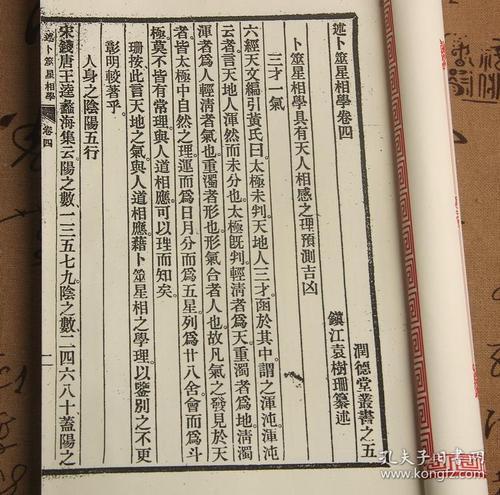 述卜筮星相學卷四
潤德堂叢書之五
鎭江袁樹珊纂述
卜筮星相學具有天人相感之理預測吉凶
三才一氣
六經天文編引黃氏曰太極未判天地人三才函於其中謂之渾沌渾沌
云者言天地人渾然而未分也太極旣判輕清者爲天重濁者爲地清濁
渾者爲人輕清者氣也重濁者形也形氣合者人也故凡氣之發見於天
者皆太極中自然之理運而爲日月分而爲五星列爲廿八舍會而爲斗
極莫不皆有常理與人道相應可以理而知矣
珊按此言天地之氣與人道相應藉卜筮星相之學理以鑒別之不更
彰明較著乎
人身之陰陽五行
宋錢唐王逵蠡海集云陽之數一三五七九陰之數二四六八十蓋陽之
述卜筮星相學
卷四
一
孔夫子旧书网